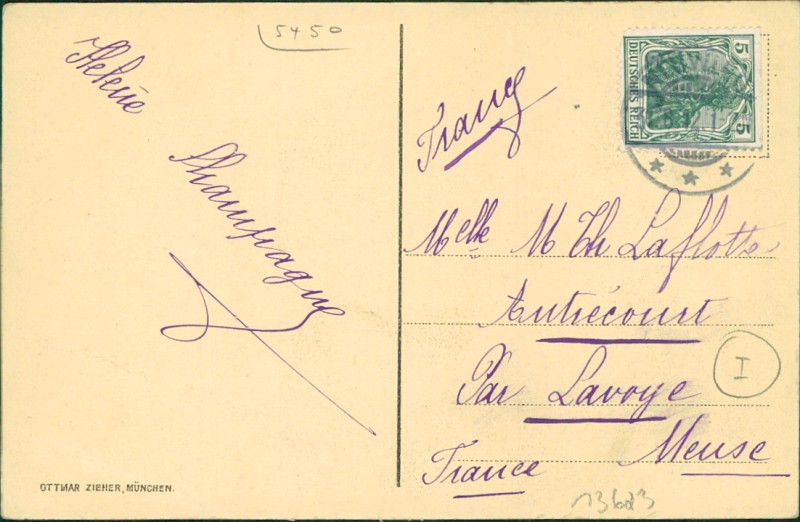 5450
Helène
Champagne
DEUTSCHES REICH
5
5
France
Melle M Th Laflotte
Autrécourt
Par Lavoye
I
Meuse
France
13623
OTTMAR ZIEHER, MÜNCHEN.